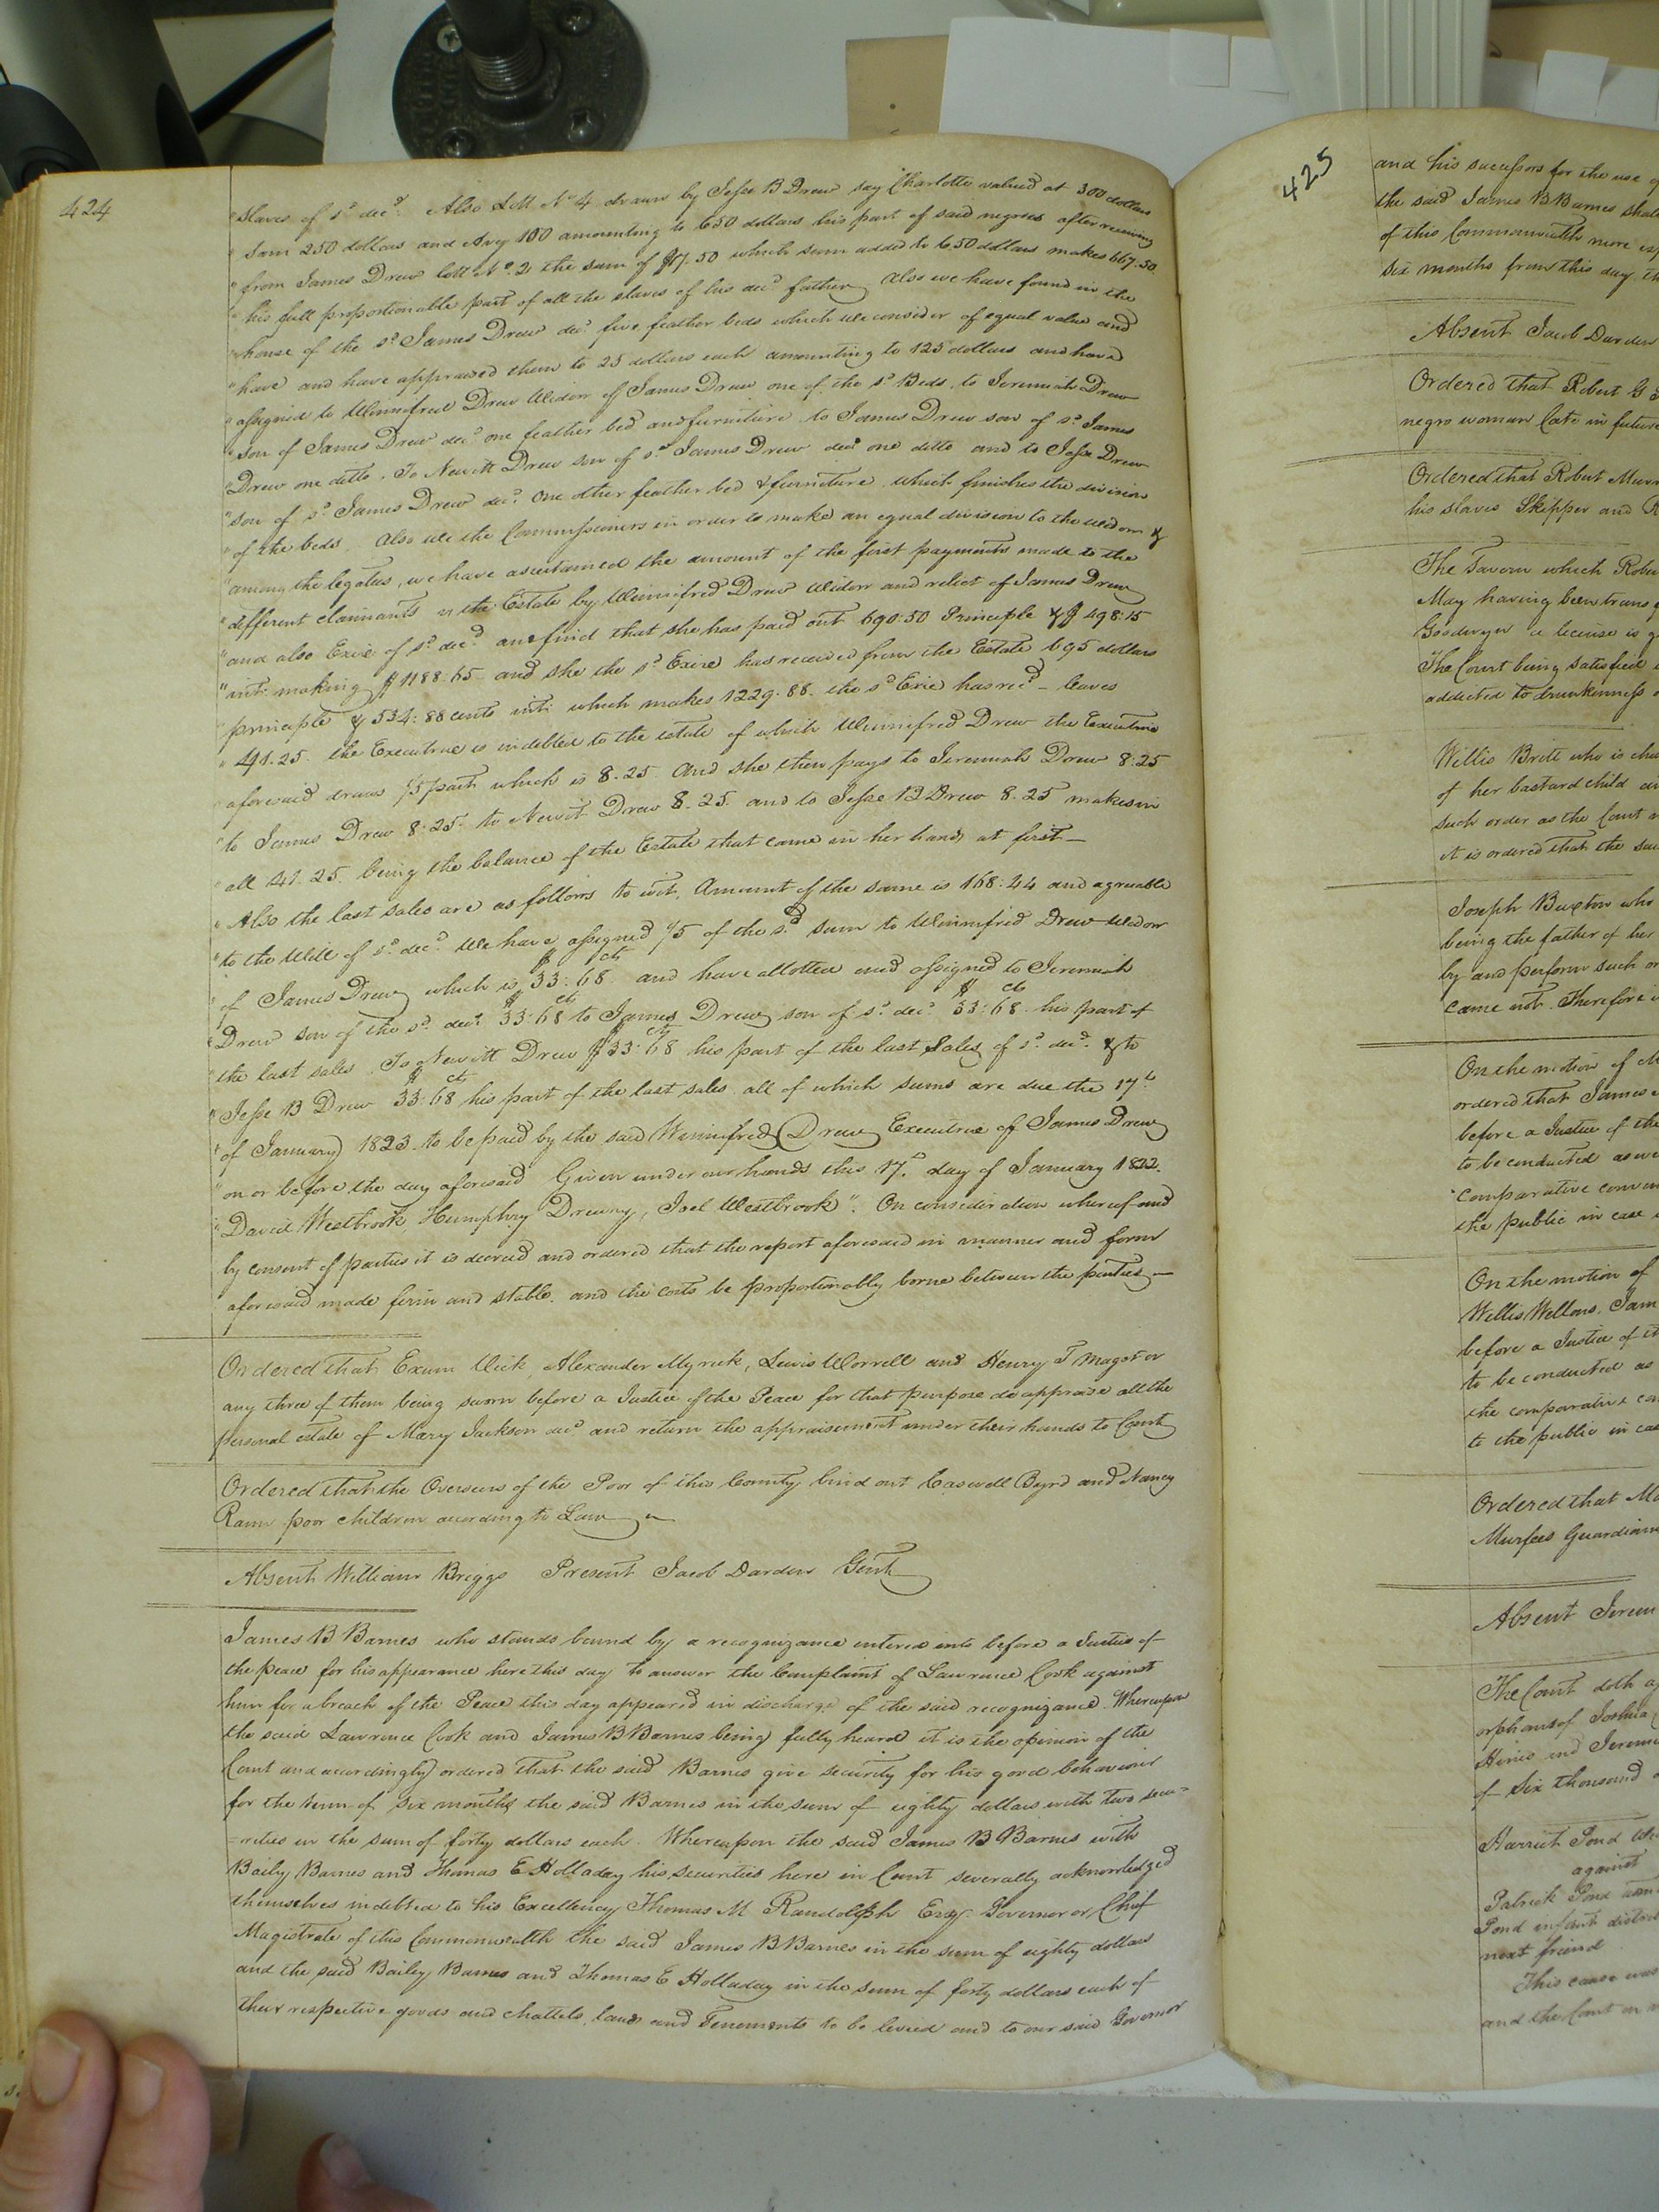 424
"slaves of sd decd. Also Lott No 4 drawn by Jesse B Drew say Charlotte valued at 300 dollars
"Sam 250 dollars and Avy 100 amounting to 650 dollars his part of said negroes after receiving
"from James Drew lott No. 2 the sum of $17.50 which sum added to 650 dollars makes 667.50.
"his full proportionable part of all the slaves of his decd father, also we have found in the
"house of the sd. James Drew decd five feather beds which we consider of equal value and
"have and have appraised them to 25 dollars each amounting to 125 dollars and have
"assigned to Winnefred Drew Widow of James Drew one of the sd Beds, to Jeremiah Drew
"son of James Drew decd one feather bed and furniture, to James Drew son of sd. James
"Drew one ditto. To Newitt Drew son of sd James Drew decd one ditto and to Jesse Drew
"son of sd. James Drew decd. One other feather bed & furniture, which finishes the division
"of the beds. Also we the Commissioners in order to make an equal division to the widow &
"among the legatees, we have ascertained the amount of the first payments made to the
"different claimants vs the Estate by Winnifred Drew Widow and relict of James Drew
"and also Exrix of sd decd. and find that she has paid out 690.50 Principle & $498.15
"intt. making $1188.65 and she the sd Exrix has received from the Estate 695 dollars
"principle & 534:88 cents intt. which makes 1229.88. the sd Exrix has recd – leaves
"41.25. the Executrix is indebted to the estate of which Winnifred Drew the Executrix
"aforesaid draws 1/5 part which is 8.25 And she then pays to Jeremiah Drew 8.25
"to James Drew 8.25. to Newit Drew 8.25. and to Jesse B Drew 8.25 makes in
"all 41.25. being the balance of the Estate that came in her hands at first—
"Also the last sales are as follows to wit, Amount of the same is 168:44 and agreeable
"to the Will of sd. decd. We have assigned 1/5 of the sd. sum to Winnifred Drew Widow
"of James Drew which is $33:68 cts and have allotted and assigned to Jeremiah
"Drew son of the sd. decd. $33:68 cts to James Drew son of sd. decd. $33:68 cts his part of
"the last sales. To Newitt Drew $33:68 cts his part of the last Sales of sd. decd. & to
"Jesse B Drew $33:68 cts his part of the last sales all of which sums are due the 17th
"of January 1823 to be paid by the said Winnifred Drew Executrix of James Drew
"on or before the day aforesaid Given under our hands this 17th day of January 1822.
"David Westbrook Humphry Drewry, Joel Westbrook". On consideration whereof and
by consent of parties it is decreed and ordered that the report aforesaid in manner and form
aforesaid made firm and stable. and the costs be proportionably borne between the parties—
Ordered that Exum Vick, Alexander Myrick, Lewis Worrell and Henry T Maget or
any three of them being sworn before a Justice of the Peace for that purpose do appraise all the
personal estate of Mary Jackson decd and return the appraisement under their hands to Court
Ordered that the Overseers of the Poor of this County bind out Caswell Byrd and Nancy
Rann poor children according to Law
Absent William Briggs Present Jacob Darden Gent
James B Barnes who stands bound by a recognizance entered into before a Justice of
the peace for his appearance here this day to answer the Complaint of Lawrence Cook against
him for a breach of the Peace this day appeared in discharge of the said recognizance. Whereupon
the said Lawrence Cook and James B Barnes being fully heard it is the opinion of the
Court and accordingly ordered that the said Barnes give security for his good behaviour
for the term of six months the said Barnes in the sum of eighty dollars with two secu=
=rities in the sum of forty dollars each. Whereupon the said James B Barnes with
Baily Barnes and Thomas E Holladay his securities here in Court severally acknowledged
themselves indebted to his Excellency Thomas M Randolph Esqr. Governor or Chief
Magistrate of this Commonwealth the said James B Barnes in the sum of eighty dollars
and the said Bailey Barnes and Thomas E Holladay in the sum of forty dollars each of
their respective goods and chattels, lands and Tenements to be levied and to our said Governor
425
and his successors for the use of
the said James B Barnes shall
of this Commonwealth more esp
six months from this day, th
Absent Jacob Darden
Ordered that Robert G
negro woman Cate in future
Ordered that Robert Murr
his slaves Skipper and
The Tavern which Rober
May having been trans
Goodwyn a license is g
The Court being satisfied
addicted to drunkenness
Willis Brett who is cha
of her bastard child an
such order as the Court
it is ordered that the sai
Joseph Buxton who
being the father of her
by and perform such or
came not. Therefore
On the motion of M
ordered that James
before a Justice of the
to be conducted as we
comparative conven
the public in case
On the motion of
Willis Wellons, Jam
before a Justice of th
to be conducted as
the comparative con
to the public in cas
Ordered that M
Murfees Guardian
Absent Jerem
The Court doth a
orphans of Joshua
Hines and Jerem
of Six thousand
Harriet Pond
against
Patrick Pond
Pond infant
next friend
This cause was
and the Court on